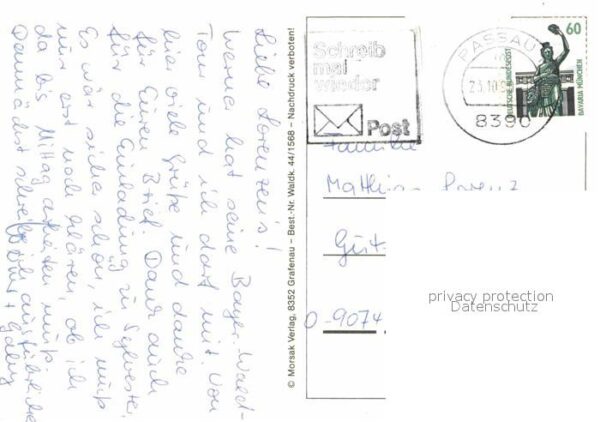 Liebe Lorenzen's!
Werner hat seine Bayer. Wald-
Tour und ich darf mit. Von
hier viele Grüße und danke
für Euren Brief. Dank auch
für die Einladung zu Silvester.
Es wär sicher schön, ich muß
nur erst noch klären, ob ich
da bis Mittag arbeiten muß.
Danach schreibe ich ausführlicher
© Morsak Verlag, 8352 Grafenau – Best.-Nr. Waldk. 44/1568 – Nachdruck verboten!
Schreib
mal
wieder
Post
PASSAU
8390
60
DEUTSCHE BUNDESPOST
BAVARIA MÜNCHEN
Familie
O-9074
privacy protection
Datenschutz